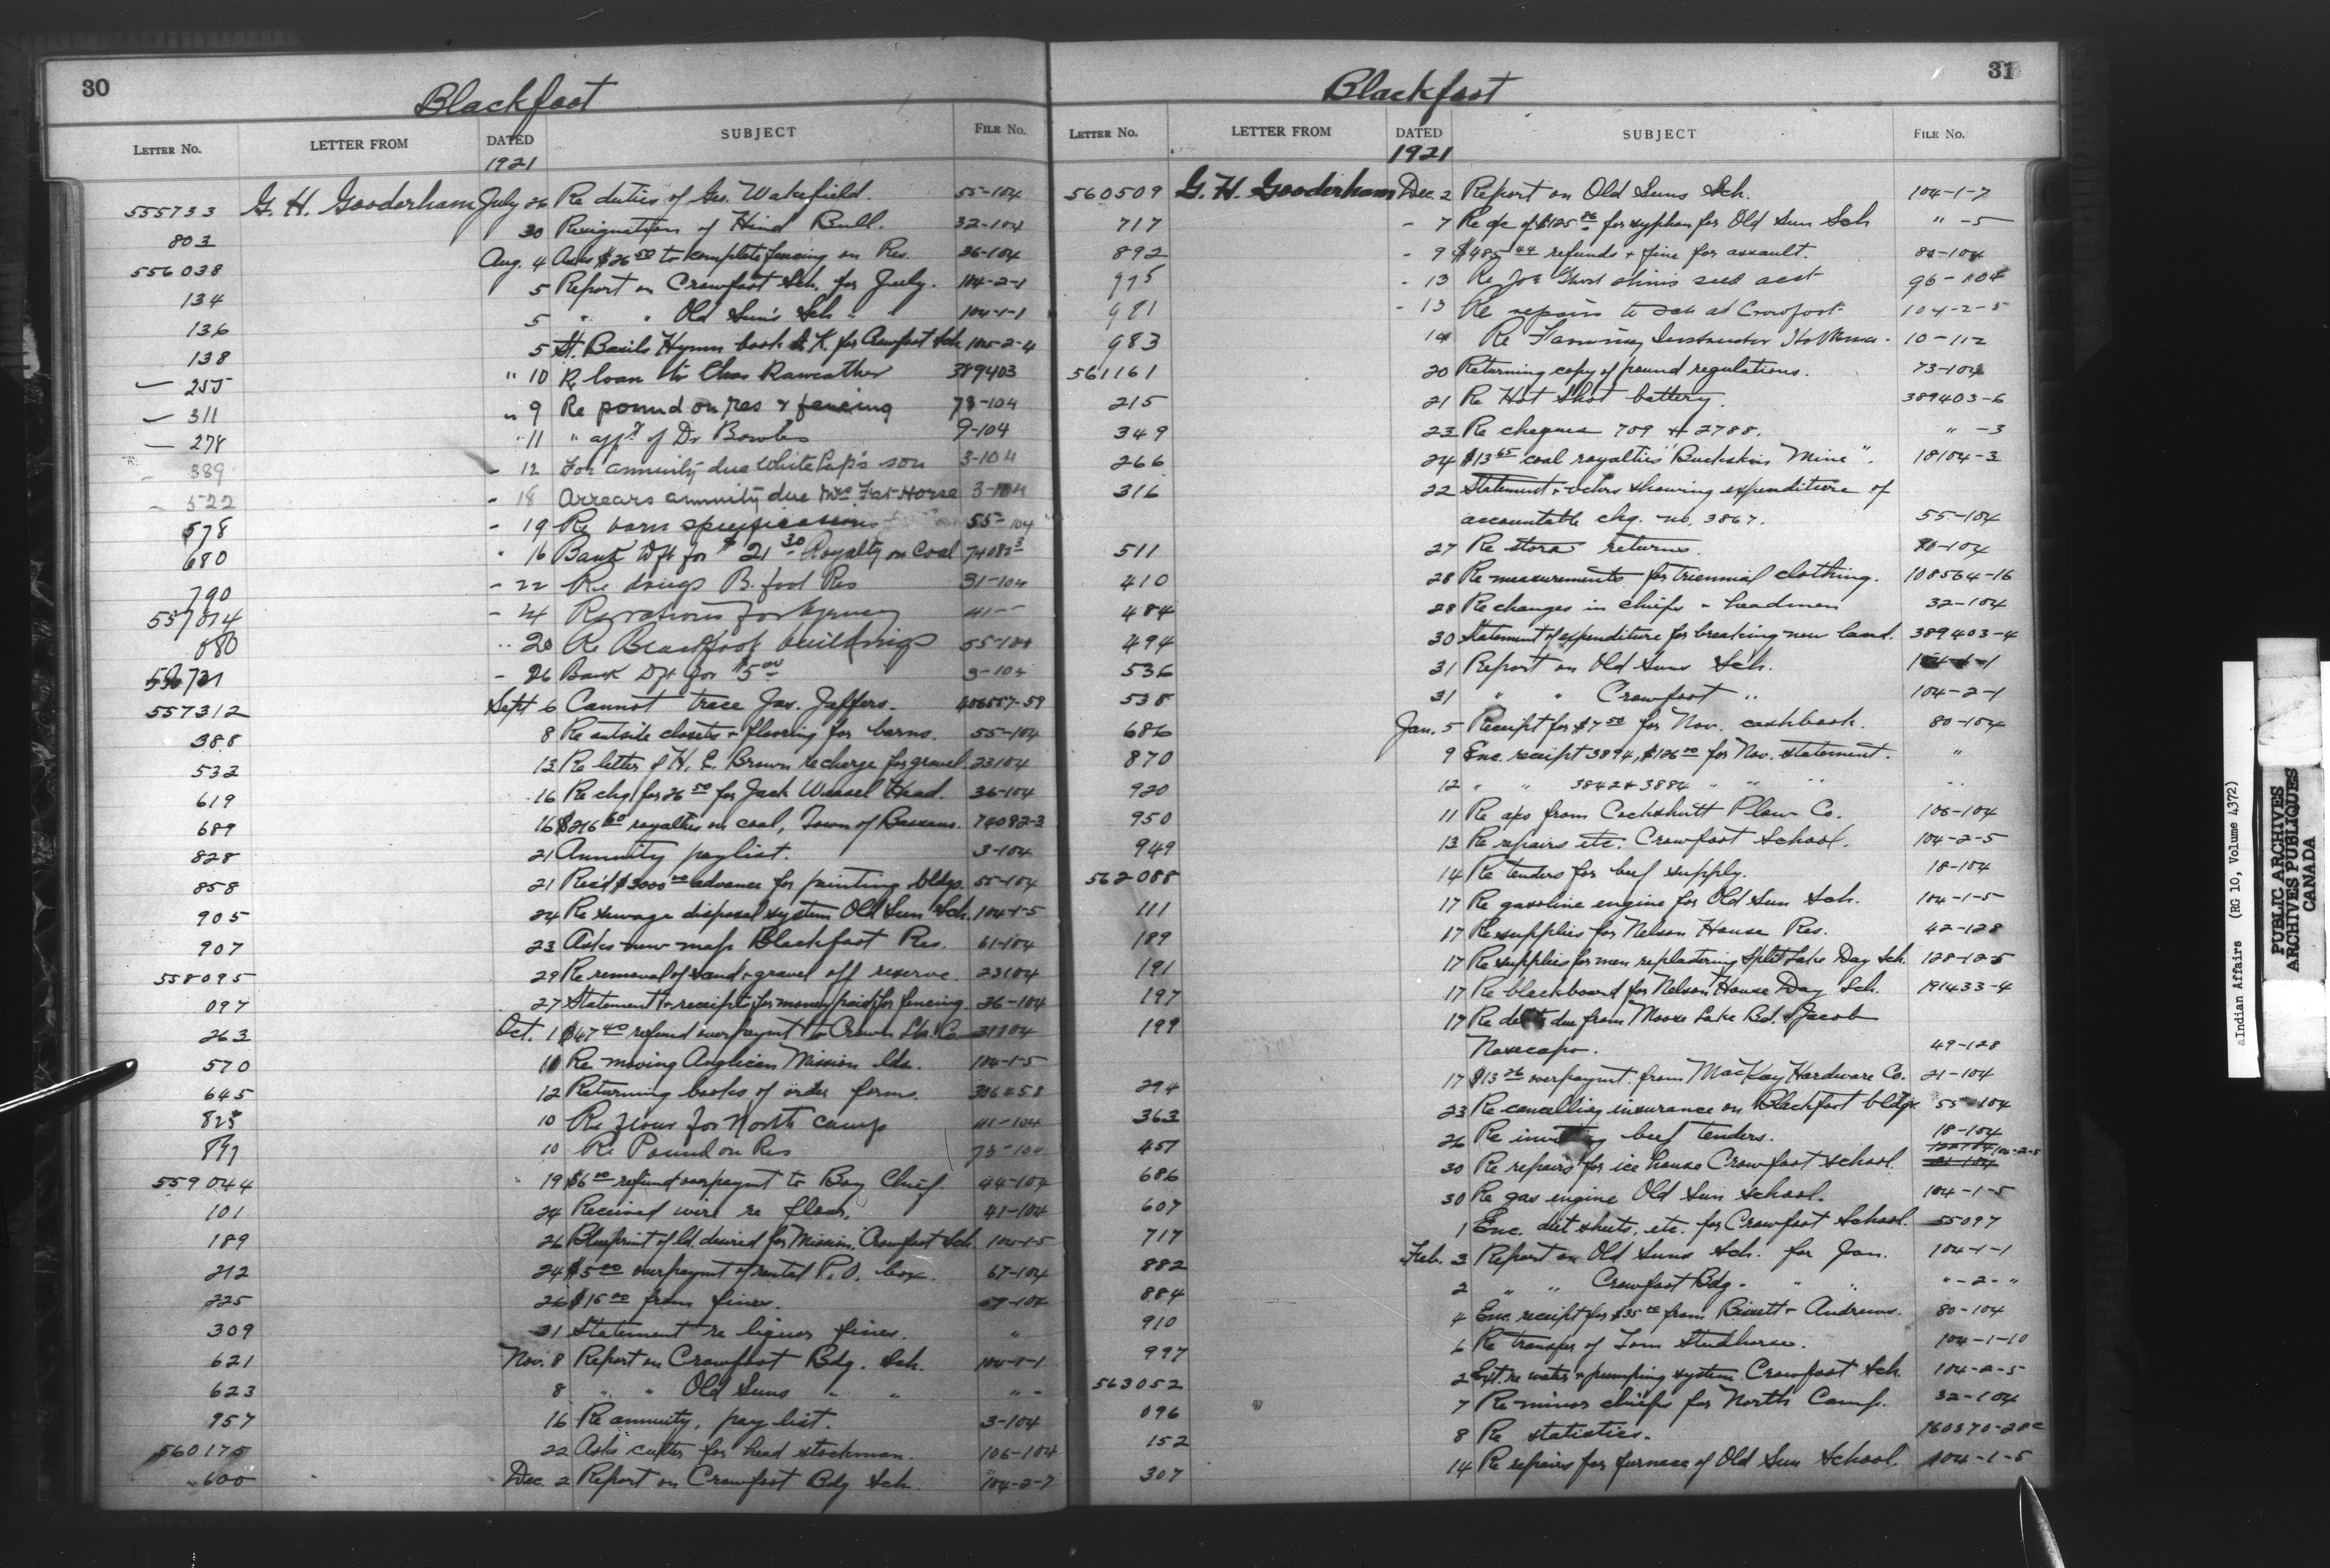 30
Blackfoot
LETTER No. LETTER FROM DATED SUBJECT FILE No.
1921
555733 G. H. Gooderham July 26 Re duties of Geo. Wakefield. 55-104
803 30 Resignation of Hind Bull. 32-104
556038 Aug. 4 Asks $26.50 to complete fencing on Res. 36-104
134 5 Report on Crowfoot Sch. for July. 104-2-1
136 5 " " Old Sun's Sch " 104-1-1
138 5 St. Basils Hymn book for Crowfoot Sch. 104-2-4
255 " 10 R. loan to Chas Raweather 389403
311 " 9 Re pound on res & fencing 73-104
278 " 11 " app't of Dr Bowles 9-104
389 - 12 For annuity due White Pup's son 3-104
522 - 18 Arrears annuity due Mrs Fat Horse 3-104
578 - 19 Re barn specifications 55-104
680 " 16 Bank Dft for $21.30 Royalty on Coal 74082-3
790 - 22 Re drugs B. foot Res 31-104
557014 - 24 Re rations for Agency 41-"
080 " 20 Re Blackfoot buildings 55-104
- 26 Bank Dft for $5.00 3-104
557312 Sept 6 Cannot trace Jas. Jaffers. 406557-59
388 8 Re outside closets & flooring for barns. 55-104
532 13 Re letter of H. E. Brown re charge for gravel. 23104
619 16 Re chq. for 26.50 for Jack Weasel Head. 36-104
689 16 $216.60 royalties on coal, Town of Bassano. 74082-3
828 21 Annuity paylist. 3-104
858 21 Rec'd $3000.00 advance for painting bldgs. 55-104
905 24 Re sewage disposal system Old Sun Sch. 104-1-5
907 23 Asks new map Blackfoot Res. 61-104
558095 29 Re removal of sand & gravel off reserve. 23104
097 27 Statement & receipts for money paid for fencing. 36-104
263 Oct. 1 $67.40 refund overpaymt to Crown Lbr. Co. 31104
570 10 Re moving Anglican Mission bldn. 104-1-5
645 12 Returning books of order forms. 306458
825 10 Re flour for North camp 41-104
891 10 Re Pound on Res 73-104
559044 19 $6.00 refund overpaymt to Boy Chief. 44-104
101 24 Received wire re flour. 41-104
189 26 Blueprint of ld. desired for Mission, Crowfoot Sch. 104-1-5
212 24 $5.00 overpaymt of rental P.O. box. 67-104
225 26 $15.00 from fines. 59-104
309 31 Statement re liquor fines. "
621 Nov. 8 Report on Crowfoot Bdg. Sch. 104-1-1
623 8 " " Old Suns " " " "
957 16 Re annuity, pay list. 3-104
560175 22 Asks cutter for head stockman. 106-104
600 Dec. 2 Report on Crowfoot Bdg Sch. 104-2-7
31
Blackfoot
LETTER No. LETTER FROM DATED SUBJECT FILE No.
1921
560509 G. H. Gooderham Dec. 2 Report on Old Suns Sch. 104-1-7
717 - 7 Re a/c of $125.86 for syphon for Old Sun Sch " -5
892 - 9 $485.44 refunds & fine for assault. 80-104
975 - 13 Re Joe seed acct 96-104
981 - 13 Re repairs to at Crowfoot 104-2-5
983 14 Re Farming Instructor 10-112
561161 20 Returning copy of pound regulations. 73-104
215 21 Re Hot Shot battery. 389403-6
349 23 Re cheques 709 & 2788. " -3
266 24 $13.65 coal royalties "Buckskin Mine". 18104-3
316 22 Statement & vchrs showing expenditure of
accountable chq. no. 3867. 55-104
511 27 Re store returns. 90-104
410 28 Re measurements for triennial clothing. 108564-16
484 28 Re changes in chiefs & headmen 32-104
494 30 Statement of expenditure for breaking new land. 389403-4
536 31 Report on Old Suns Sch. 104-1-1
538 31 " " Crowfoot " 104-2-1
686 Jan. 5 Receipt for $7.50 for Nov. cashbook. 80-104
870 9 Enc. receipt 3894, $126.00 for Nov. statement. "
920 12 " " 3842 & 3884 " " " "
950 11 Re a/cs from Cockshutt Plow Co. 106-104
949 13 Re repairs etc. Crowfoot School. 104-2-5
562088 14 Re tenders for beef supply. 18-104
111 17 Re gasoline engine for Old Sun Sch. 104-1-5
189 17 Re supplies for Nelson House Res. 42-128
191 17 Re supplies for men replastering Split Lake Day Sch. 128-12-5
197 17 Re blackboard for Nelson House Day Sch. 191433-4
199 17 Re debts due from Moose Lake Bd. & Jacob
Nasecapo. 49-128
294 17 $13.26 overpaymt. from MacKay Hardware Co. 21-104
363 23 Re cancelling insurance on Blackfoot bldgs. 55-104
457 26 Re inviting beef tenders. 18-104
686 30 Re repairs for ice house Crowfoot school. 104-2-5
607 30 Re gas engine Old Sun school. 104-1-5
717 1 Enc. diet sheets, etc. for Crowfoot School. 55097
882 Feb. 3 Report on Old Suns Sch. for Jan. 104-1-1
884 2 " " Crowfoot Bdg. " " " -2- "
910 4 Enc. receipt for $35.00 from Bissett & Andrews. 80-104
997 6 Re transfer of Tom Studhorse. 104-1-10
563052 2 Rept. re water & pumping system Crowfoot Sch. 104-2-5
096 7 Re minor chiefs for North Camp. 32-104
152 8 Re statistics. 160370-20c
307 14 Re repairs for furnace of Old Sun School. 104-1-5
Indian Affairs (RG 10, Volume 4372)
PUBLIC ARCHIVES
ARCHIVES PUBLIQUES
CANADA